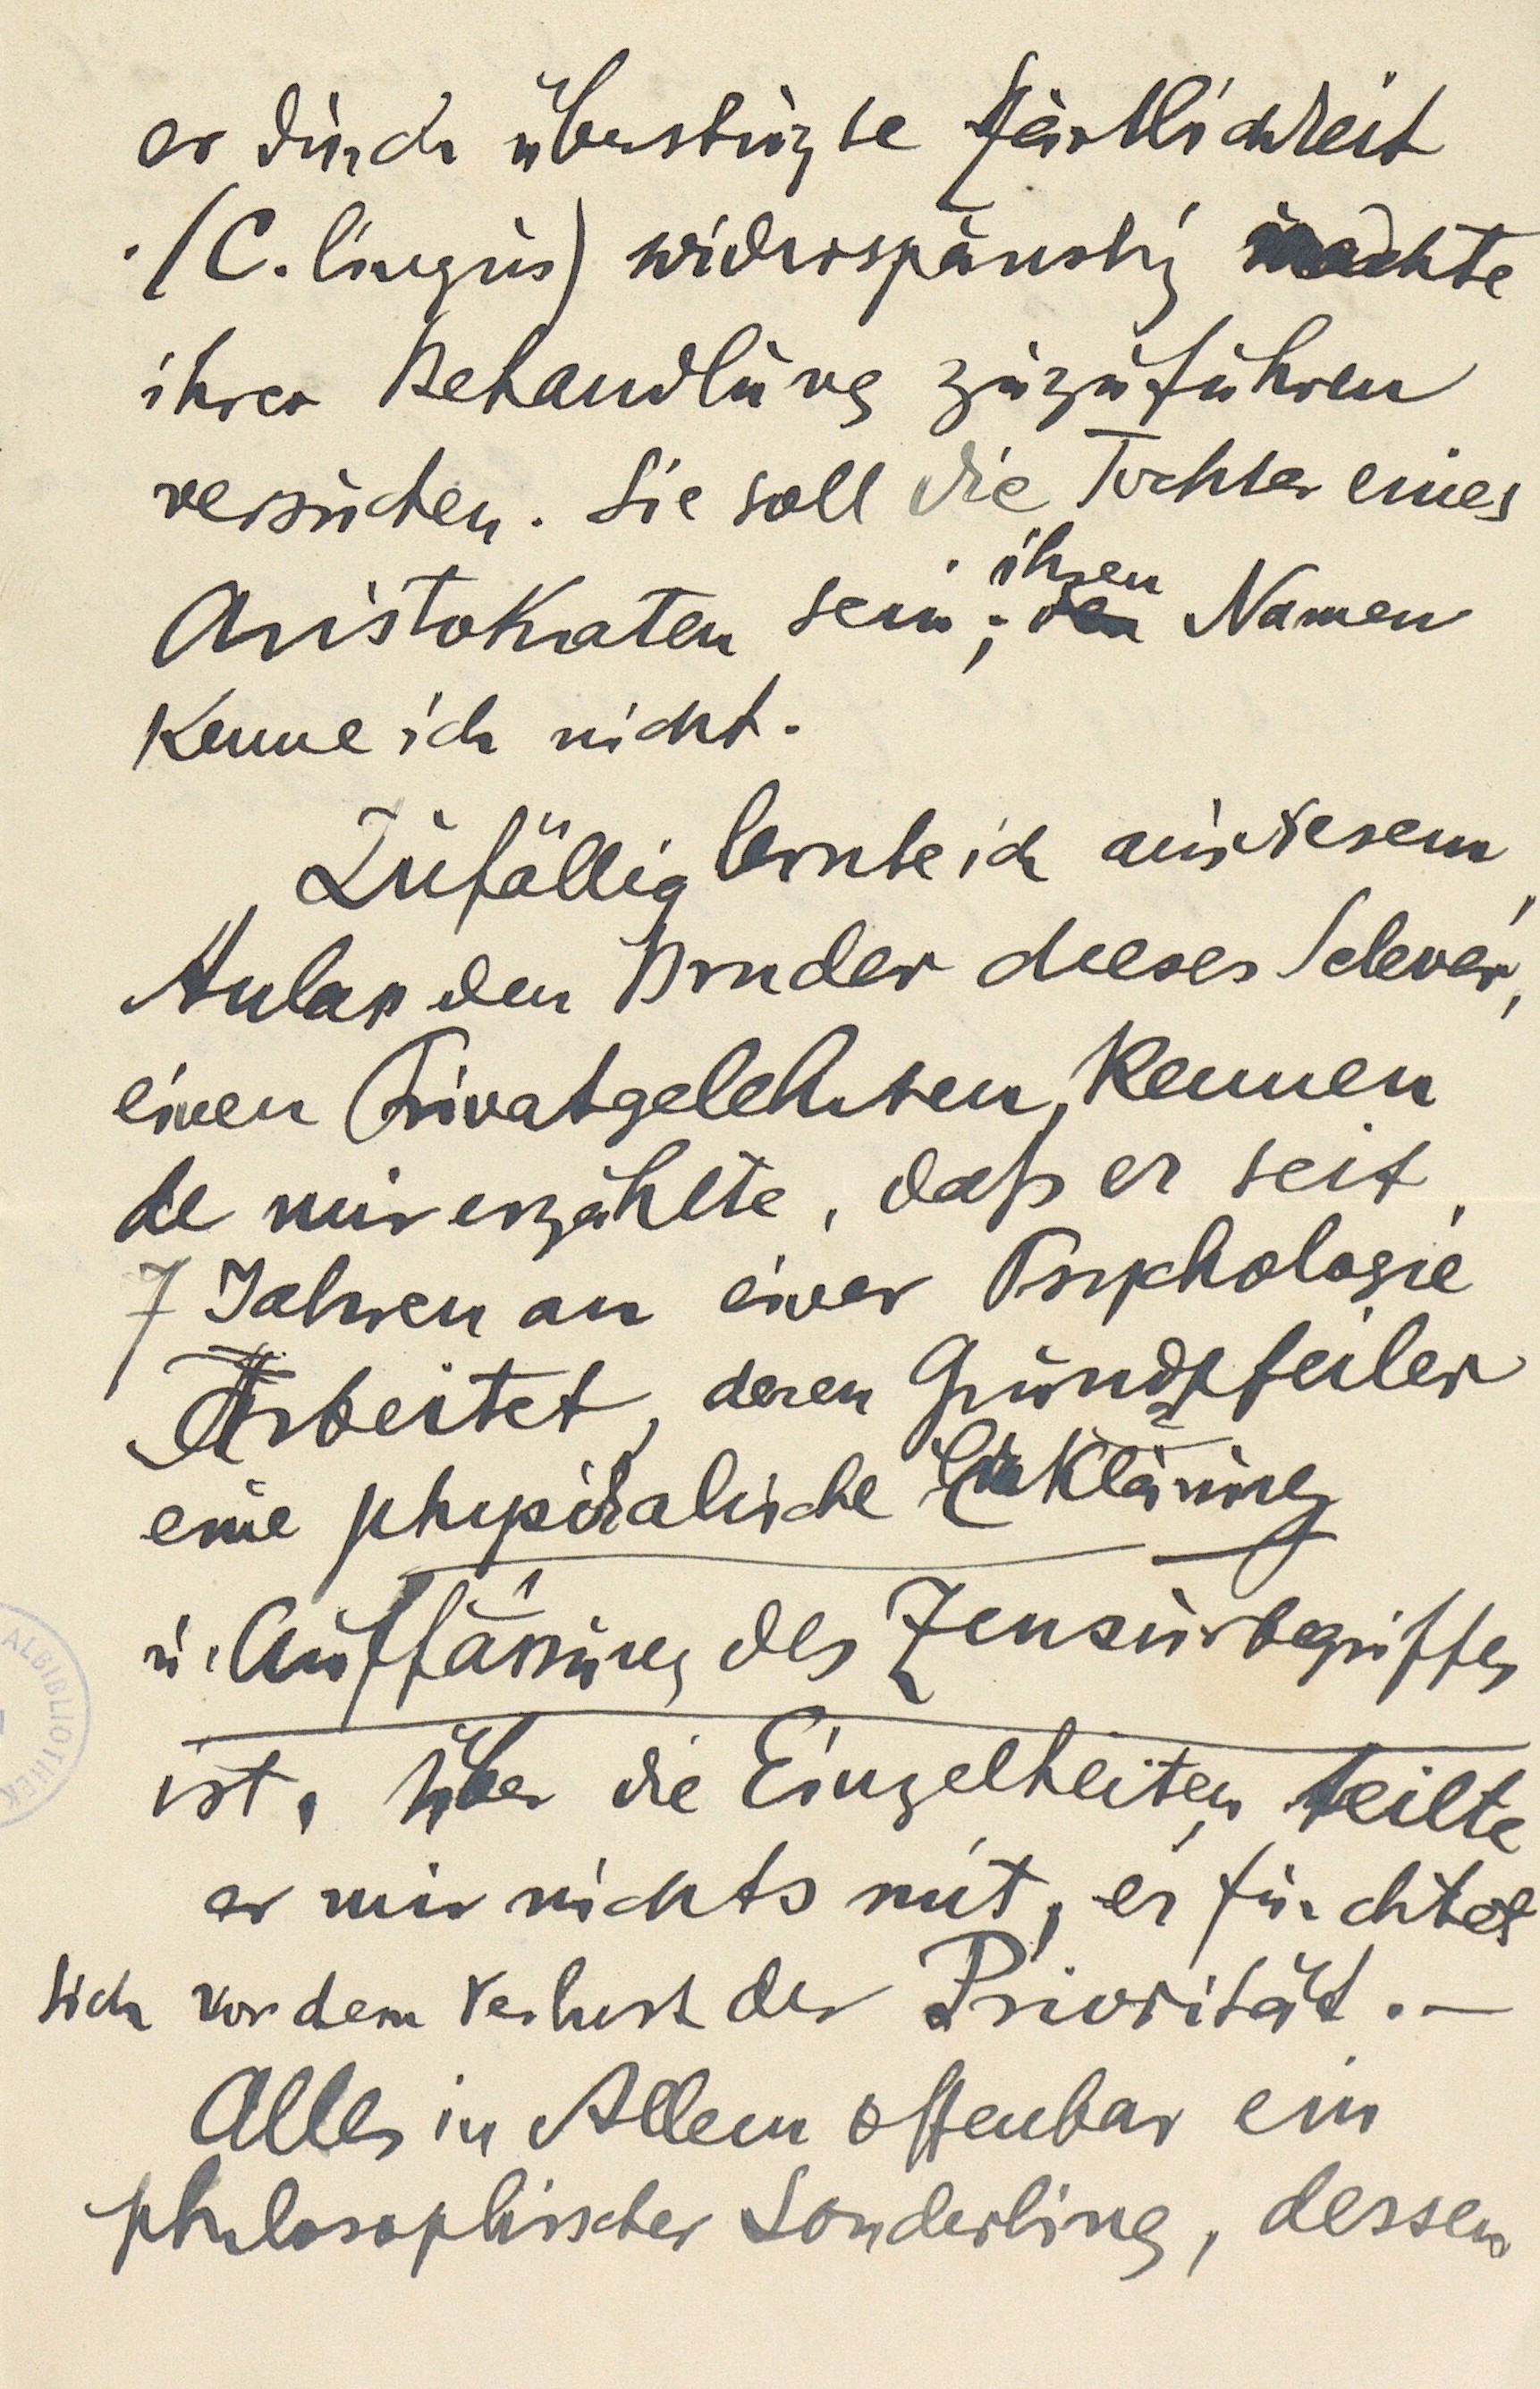 er durch überstürzte Zärtlichkeit
(C. lingus) widerspänstig machte
ihrer Behandlung zuzuführen
versuchen. Sie soll die Tochter eines
Aristokraten sein; ihren
den Namen
kenne ich nicht.
Zufällig lernte ich aus diesem
Anlass den Bruder dieses
einen Privatgelehrten, kennen
de mir erzählte, daß er seit
7 Jahren an einer Psychologie
Arbeitet, deren Grundpfeiler
eine physikalische Erklärung
u. Auffassung des Zensurbegriffes
ist. Über die Einzelheiten teilte
er mir nichts mit, er fürchtet
sich vor dem Verlust der Priorität. –
Alles in Allem offenbar ein
philosophischer Sonderling, dessen
ALBIBLIOTHEK